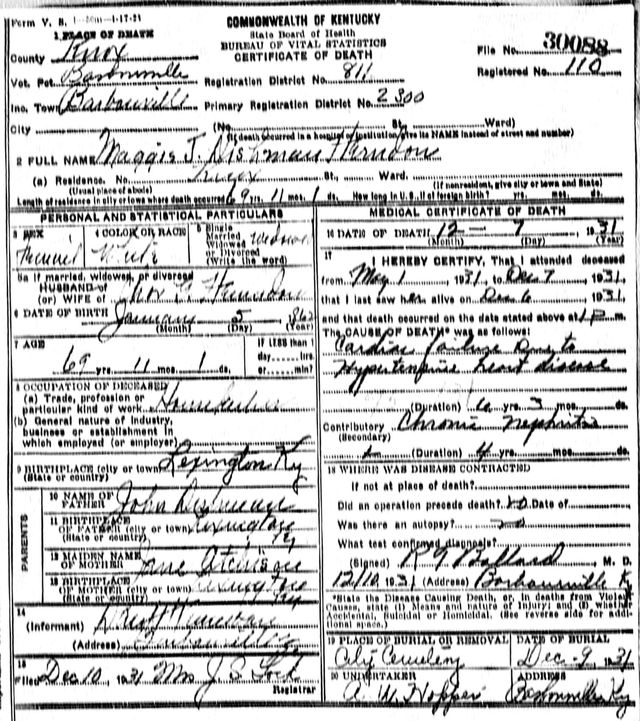 Form V. S. 1-50m-1-17-21
COMMONWEALTH OF KENTUCKY
State Board of Health
BUREAU OF VITAL STATISTICS
CERTIFICATE OF DEATH
1 PLACE OF DEATH
County Knox
Vot. Pct. Barbourville
Inc. Town Barbourville
City
Registration District No. 811
Primary Registration District No. 2300
File No. 30088
Registered No. 110
(No. St. Ward)
(If death occurred in a hospital or institution, give its NAME instead of street and number)
2 FULL NAME Maggie J. Dishman Herndon
(a) Residence. No. Knox St., Ward.
(Usual place of abode) (If nonresident, give city or town and State)
Length of residence in city or town where death occurred 69 yrs. 11 mos. 1 ds. How long in U. S., if of foreign birth? yrs. mos. ds.
PERSONAL AND STATISTICAL PARTICULARS
3 SEX
4 COLOR OR RACE
5 Single Married Widowed or Divorced (Write the word) widow
5a If married, widowed, or divorced
HUSBAND of
(or) WIFE of Herndon
6 DATE OF BIRTH January 5, 1862
(Month) (Day) (Year)
7 AGE 69 yrs 11 mos. 1 ds.
If LESS than 1 day......hrs. or......min?
8 OCCUPATION OF DECEASED
(a) Trade, profession or particular kind of work
(b) General nature of Industry, business or establishment in which employed (or employer)
9 BIRTHPLACE (city or town) Lexington Ky
(State or country)
PARENTS
10 NAME OF FATHER John Dishman
11 BIRTHPLACE OF FATHER (city or town) Lexington
(State or country) Ky
12 MAIDEN NAME OF MOTHER Jane
13 BIRTHPLACE OF MOTHER (city or town) Lexington
(State or country) Ky
14
(Informant) Herndon
(Address) Barbourville Ky
15
Filed Dec 10, 1931 Mrs J. S. Lock
Registrar
MEDICAL CERTIFICATE OF DEATH
16 DATE OF DEATH 12 - 7 1931
(Month) (Day) (Year)
17
I HEREBY CERTIFY, That I attended deceased
from May 1, 1931, to Dec 7, 1931,
that I last saw her alive on Dec 6, 1931,
and that death occurred on the date stated above at 1 P m.
The CAUSE OF DEATH* was as follows:
Cardiac failure due to
Hypertensive heart disease
(Duration) yrs. 3 mos. ds.
Contributory Chronic nephritis
(Secondary)
(Duration) 4 yrs. mos. ds.
18 WHERE WAS DISEASE CONTRACTED
If not at place of death?
Did an operation precede death? no Date of
Was there an autopsy? no
What test confirmed diagnosis?
(Signed) R G Ballard M. D.
12/10, 1931 (Address) Barbourville Ky
*State the Disease Causing Death, or, in deaths from Violent
Causes, state (1) Means and nature of Injury; and (2) whether
Accidental, Suicidal or Homicidal. (See reverse side for addi-
tional space.)
19 PLACE OF BURIAL OR REMOVAL City Cemetery
DATE OF BURIAL Dec-9, 1931
20 UNDERTAKER A. W. Hopper
ADDRESS Barbourville Ky